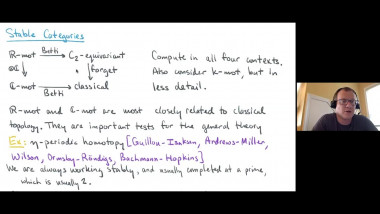 Stable Categories
R-mot Betti C₂-equivariant
⊗C forget
C-mot Betti classical
Compute in all four contexts.
Also consider k-mot, but in
less detail.
R-mot and C-mot are most closely related to classical
topology. They are important tests for the general theory
Ex: η-periodic homotopy [Guillou-Isaksen, Andrews-Miller,
Wilson, Ormsby-Röndigs, Bachmann-Hopkins]
We are always working stably, and usually completed at a prime,
which is usually 2.